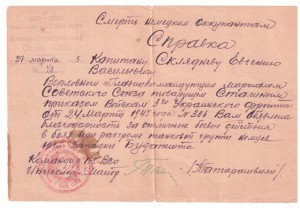 Смерть немецким оккупантам
Справка
27 марта 5. Капитану Скляднёву Евгению
Васильевичу
Верховный Главнокомандующий маршал
Советского Союза товарищ Сталин
приказом Войскам 3го Украинского фронта
от 24 Марта 1945 года № 306 Вам объявил
благодарность за отличные боевые действия
в боях разгроме танковой группы немцев
Западнее Будапешта
Командир
майор